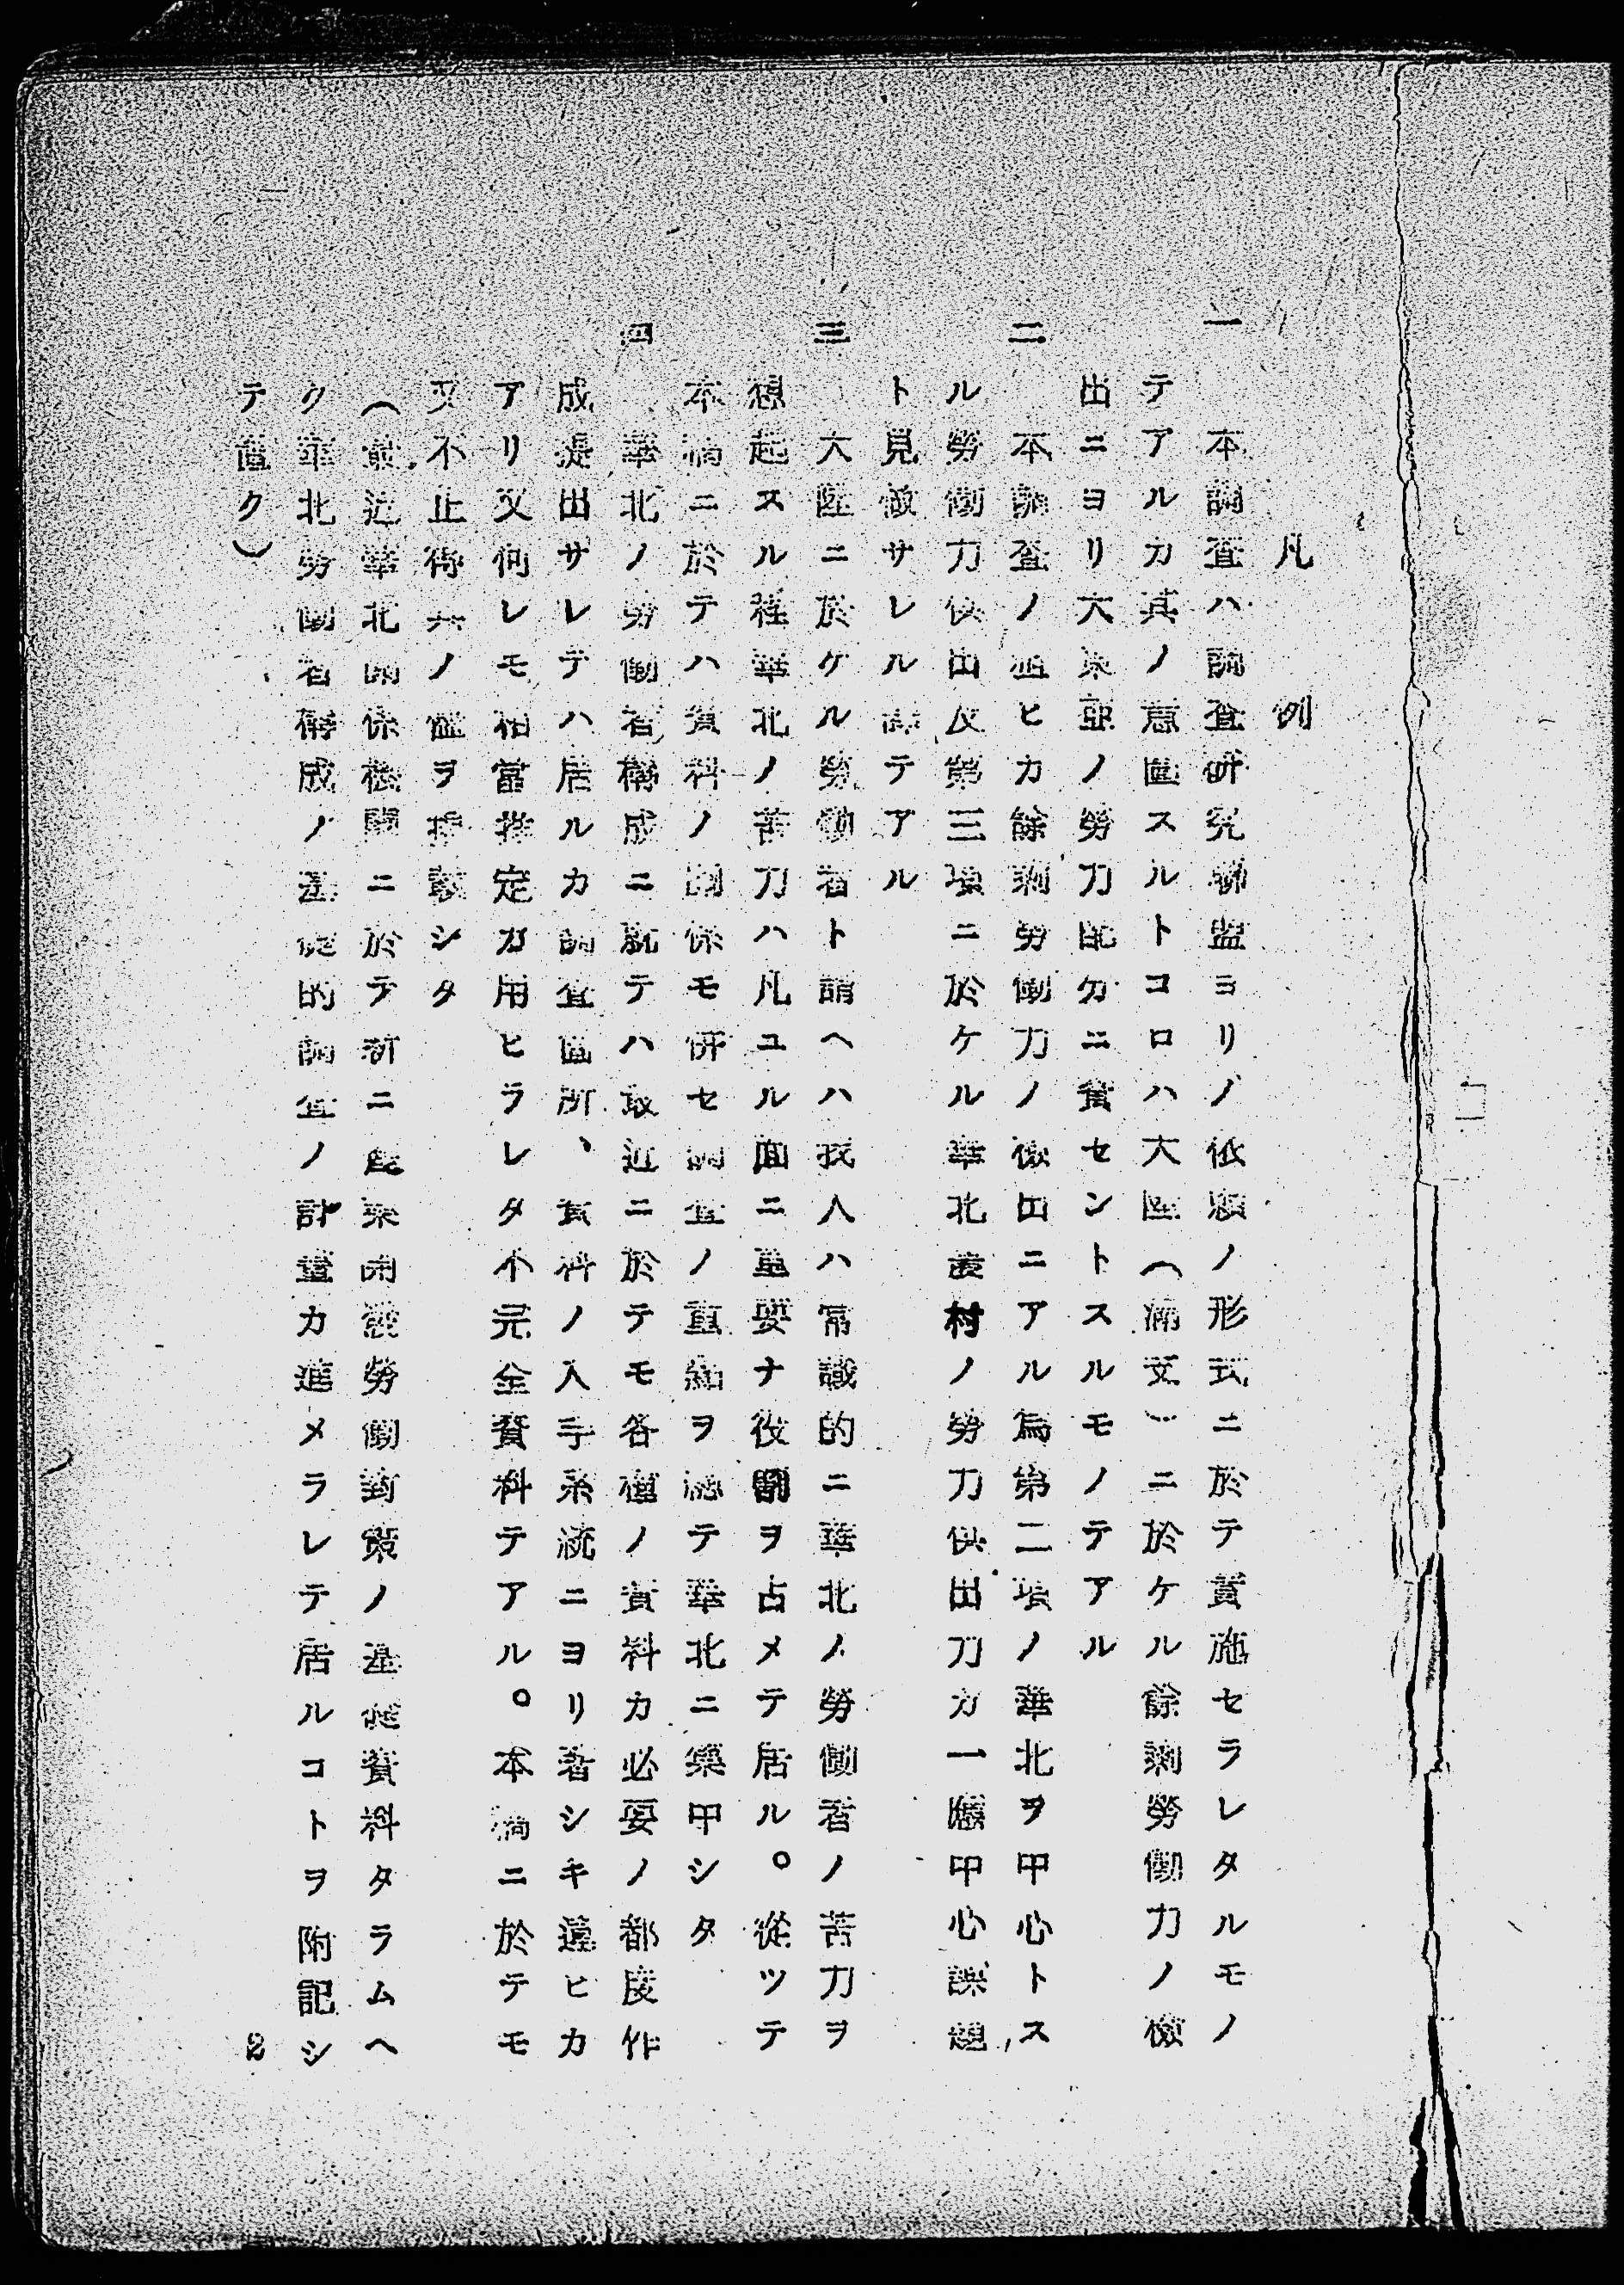 凡例
一　本調査ハ調査研究聯盟ヨリノ依頼ノ形式ニ於テ實施セラレタルモノ
テアルカ其ノ意圖スルトコロハ大陸（滿支）ニ於ケル餘剩勞働力ノ檢
出ニヨリ大東亞ノ勞力配分ニ資セントスルモノテアル
二　本調査ノ狙ヒカ餘剩勞働力ノ檢出ニアル爲第二項ノ華北ヲ中心トス
ル勞働力供出及第三項ニ於ケル華北農村ノ勞力供出力カ一應中心課題
ト見做サレル テアル
三　大陸ニ於ケル勞働者ト謂ヘハ我人ハ常識的ニ華北ノ勞働者ノ苦力ヲ
想起スル程華北ノ苦力ハ凡ユル面ニ重要ナ役割ヲ占メテ居ル。從ツテ
本稿ニ於テハ資料ノ關係モ併セ調査ノ重點ヲ總テ華北ニ集中シタ
四　華北ノ勞働者構成ニ就テハ最近ニ於テモ各種ノ資料カ必要ノ都度作
成提出サレテハ居ルカ調査個所、資料ノ入手系統ニヨリ著シキ違ヒカ
アリ又何レモ相當推定カ用ヒラレタ不完全資料テアル。本稿ニ於テモ
又不止得共ノ儘ヲ揭載シタ
（最近華北關係機關ニ於テ新ニ 東開發勞働對策ノ基礎資料タラムヘ
ク華北勞働者構成ノ基礎的調査ノ計畫カ進メラレテ居ルコトヲ附記シ
テ置ク）
2